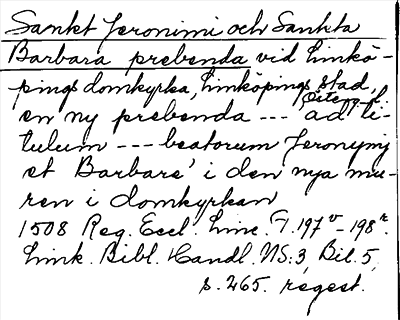 Sankt Jeronimi och Sankta
Barbara prebenda vid Linkö-
pings domkyrka, Linköpings stad,
Österg.
en ny prebenda --- ad ti-
tulum --- beatorum Jeronymj
et Barbare' i den nya mu-
ren i domkyrkan
1508 Reg. Eccl. Linc. F. 197v-198r.
Link. Bibl. Handl. NS:3 Bil. 5,
s. 265. regest.